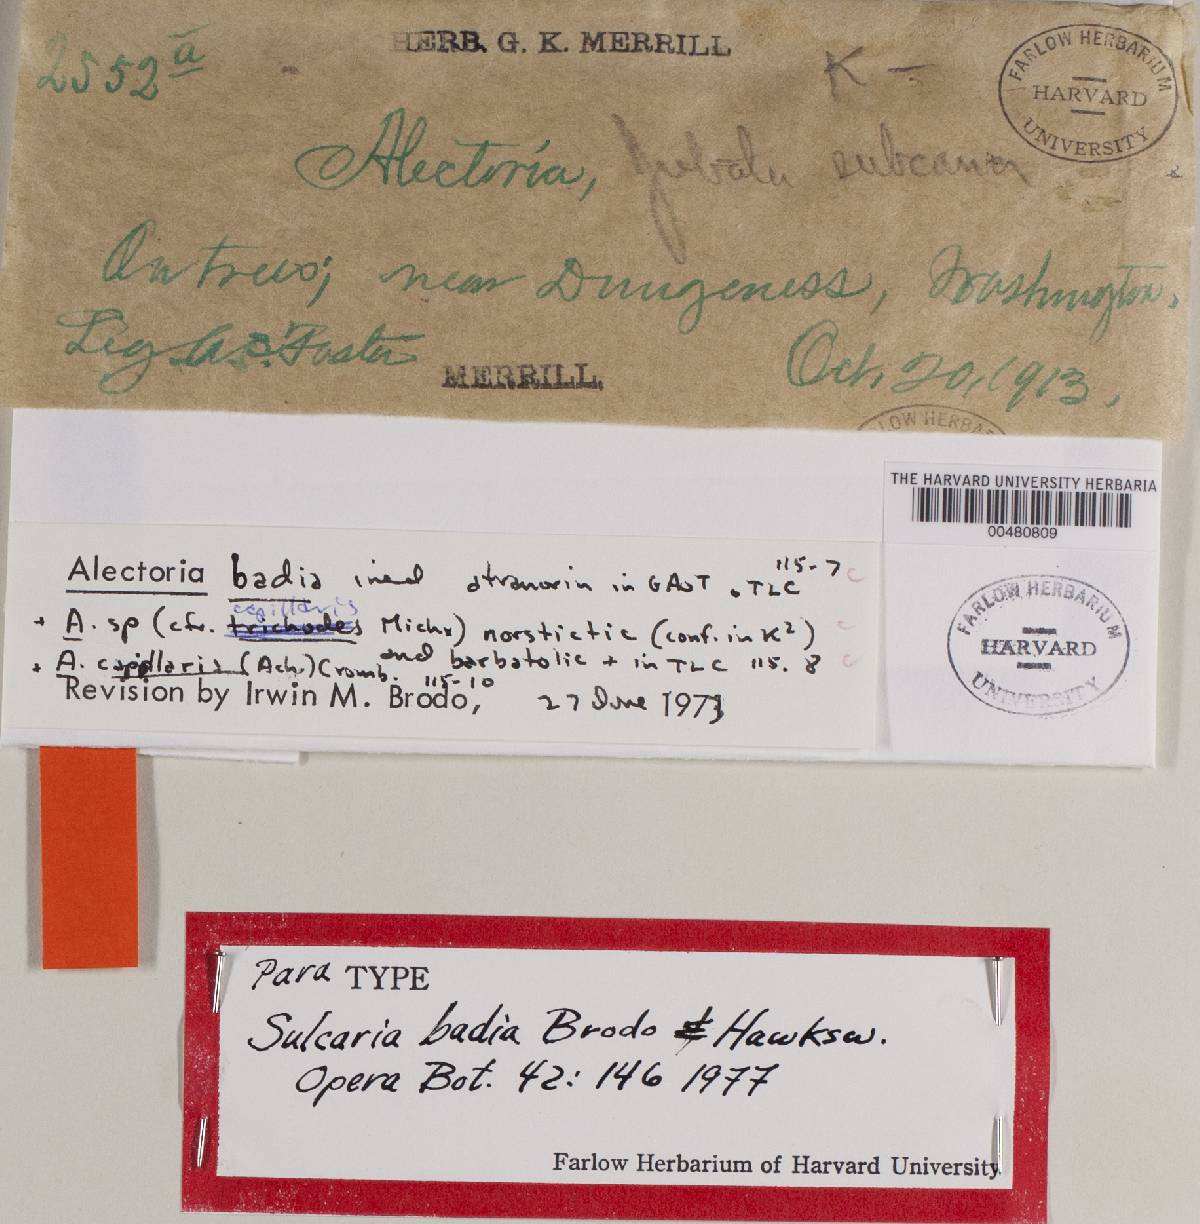 2552a
HERB. G. K. MERRILL
K –
FARLOW HERBARIUM
HARVARD
UNIVERSITY
Alectoria, jubata subcana
On trees; near Dungeness, Washington.
Leg A. S. Foster
MERRILL.
Oct. 20, 1913.
LOW HERBAR
THE HARVARD UNIVERSITY HERBARIA
00480809
Alectoria badia ined atranorin in GAoT. TLC 115-7 c
+ A. sp (cfr. trichodes capillaris Michx) norstictic (conf. in K²) c
and barbatolic + in TLC 115. 8 c
+ A. capillaris (Ach.) Cromb. 115-10
Revision by Irwin M. Brodo, 27 June 1973
FARLOW HERBARIUM
HARVARD
UNIVERSITY
Para TYPE
Sulcaria badia Brodo & Hawksw.
Opera Bot. 42: 146 1977
Farlow Herbarium of Harvard University